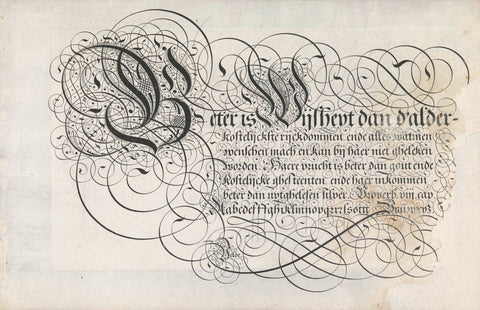 Beter is Wijsheyt dan d'alder-
kostelijckste rijckdommen ende alles watmen
wenschen mach en kan bij haer niet gheleken
worden. Haere vrucht is beter dan gout ende
kostelijcke ghesteenten ende haer inkommen
beter dan uytghelesen silver. Proverb. viij. cap.
Aabcdeffghiklmnopqrrsſ
Velde.